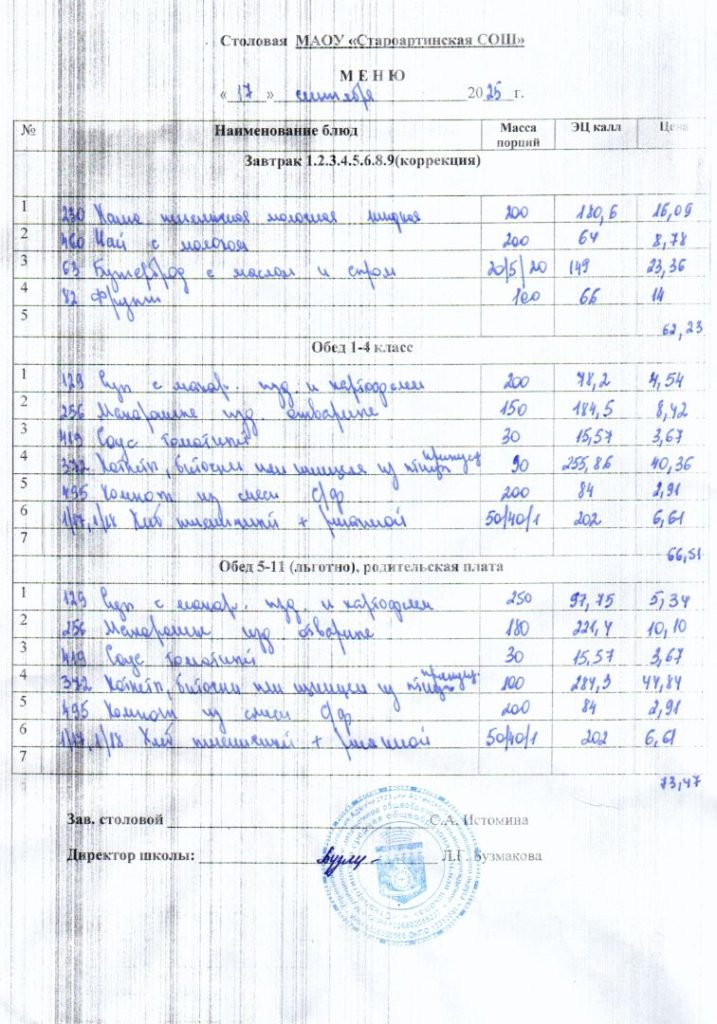 Столовая МАОУ «Староартинская СОШ»
МЕНЮ
«17» сентября 2025 г.
№ Наименование блюд Масса порций ЭЦ калл Цена
Завтрак 1.2.3.4.5.6.8.9(коррекция)
1 230 Каша пшеничная молочная жидкая 200 180,6 16,09
2 460 Чай с молоком 200 64 8,78
3 63 Бутерброд с маслом и сыром 20/5/20 149 23,36
4 82 Фрукт 100 66 14
5 62,23
Обед 1-4 класс
1 129 Суп с макар. изд. и картофелем 200 78,2 4,54
2 256 Макаронные изд. отварные 150 184,5 8,42
3 419 Соус томатный 30 15,57 3,67
4 372 Котлеты, биточки или шницеля из птицы припущ. 90 255,86 40,36
5 495 Компот из смеси с/ф 200 84 2,91
6 1/17, 1/18 Хлеб пшеничный + ржаной 50/40/1 202 6,61
7 66,51
Обед 5-11 (льготно), родительская плата
1 129 Суп с макар. изд. и картофелем 250 97,75 5,34
2 256 Макаронные изд. отварные 180 221,4 10,10
3 419 Соус томатный 30 15,57 3,67
4 372 Котлеты, биточки или шницеля из птицы припущ. 100 284,3 44,84
5 495 Компот из смеси с/ф 200 84 2,91
6 1/17, 1/18 Хлеб пшеничный + ржаной 50/40/1 202 6,61
7
73,47
Зав. столовой С.А. Истомина
Директор школы: Л.Г. Бузмакова